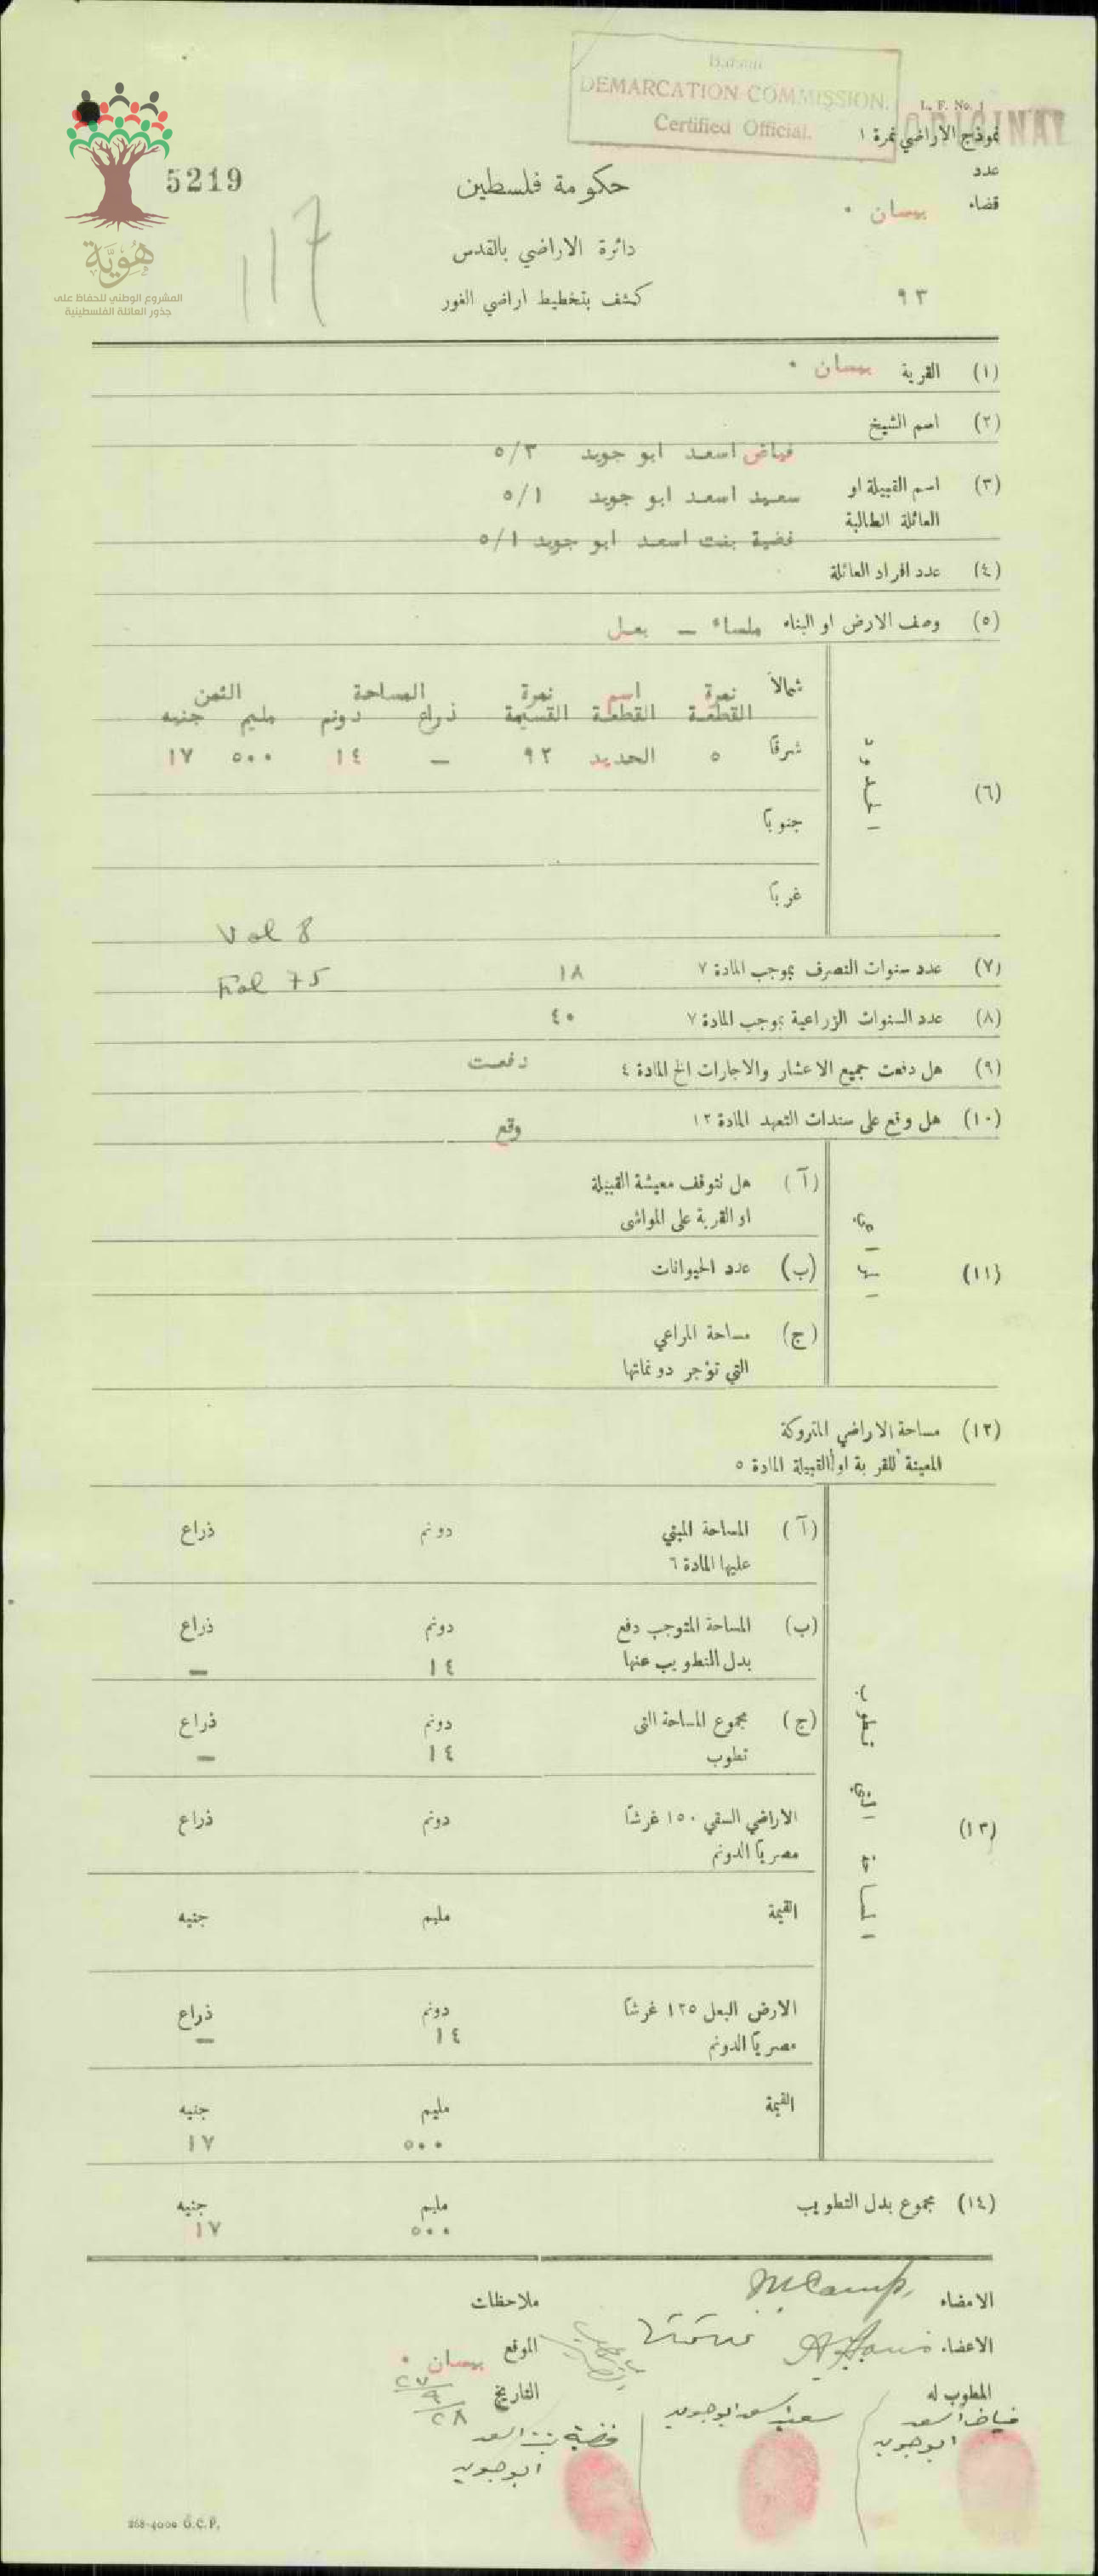 Baisan
DEMARCATION COMMISSION.
Certified Official.
L. F. No. 1
ORIGINAL
نموذج الاراضي نمرة ١
عدد
5219
حكومة فلسطين
قضاء بيسان
117
دائرة الاراضي بالقدس
هُويَّة
المشروع الوطني للحفاظ على
جذور العائلة الفلسطينية
كشف بتخطيط اراضي الغور
٩٣
(١) القرية بيسان
(٢) اسم الشيخ
فياض اسعد ابو جويد ٥/٣
(٣) اسم القبيلة او
العائلة الطالبة
سعيد اسعد ابو جويد ٥/١
فضية بنت اسعد ابو جويد ٥/١
(٤) عدد افراد العائلة
(٥) وصف الارض او البناء ملساء — بعل
(٦) الحدود
شمالاً
نمرة القطعة اسم القطعة نمرة القسيمة المساحة ذراع دونم الثمن مليم جنيه
شرقاً ٥ الحديد ٩٣ — ١٤ ٥٠٠ ١٧
جنوباً
غرباً
Vol 8
Fol 75
(٧) عدد سنوات التصرف بموجب المادة ٧ ١٨
(٨) عدد السنوات الزراعية بموجب المادة ٧ ٤٠
(٩) هل دفعت جميع الاعشار والاجارات الخ المادة ٤ دفعت
(١٠) هل وقع على سندات التعهد المادة ١٢ وقع
(١١)
(آ) هل تتوقف معيشة القبيلة
او القرية على المواشي
(ب) عدد الحيوانات
(ج) مساحة المراعي
التي تؤجر دونماتها
(١٢) مساحة الاراضي المتروكة
المعينة للقرية او القبيلة المادة ٥
(١٣) المساحة التي تطوب
(آ) المساحة المبني دونم ذراع
عليها المادة ٦
(ب) المساحة المتوجب دفع دونم ذراع
بدل التطويب عنها ١٤ —
(ج) مجموع المساحة التي دونم ذراع
تطوب ١٤ —
الاراضي السقي ١٥٠ غرشاً دونم ذراع
مصرياً الدونم
القيمة مليم جنيه
الارض البعل ١٢٥ غرشاً دونم ذراع
مصرياً الدونم ١٤ —
القيمة مليم جنيه
٥٠٠ ١٧
(١٤) مجموع بدل التطويب مليم جنيه
٥٠٠ ١٧
الامضاء
ملاحظات
الاعضاء
الموقع بيسان
المطوب له
التاريخ ٢٧/٩/٢٨
فياض اسعد
ابو جويد
سعيد اسعد ابو جويد
فضية بنت اسعد
ابو جويد
268-4000 G.C.P.